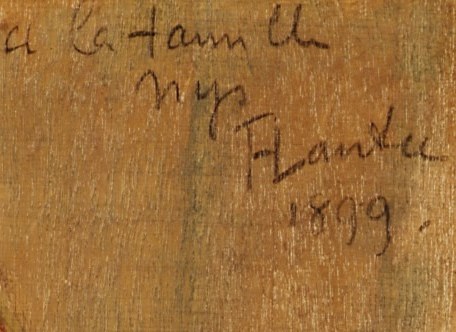 a la famille
Nys
F Lantee
1899.